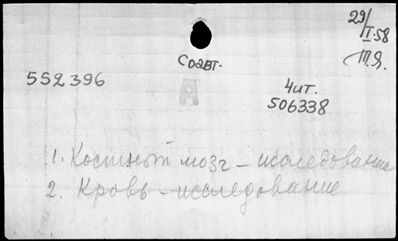 29/I-58
Соавт.
Т.Я.
552396
Чит.
506338
1. Костный мозг - исследование
2. Кровь - исследование